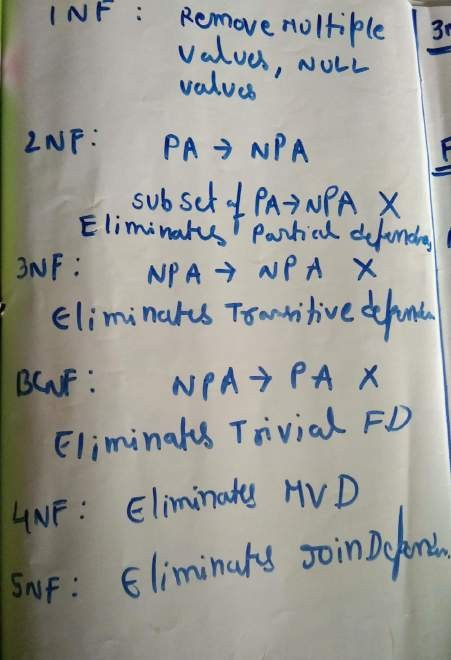 1NF : Remove Multiple
values, NULL
values
2NF: PA → NPA
subset of PA→NPA X
Eliminates Partial
3NF : NPA → NPA X
Eliminates Transitive
BCNF : NPA → PA X
Eliminates Trivial FD
4NF : Eliminates MVD
5NF : Eliminates Join